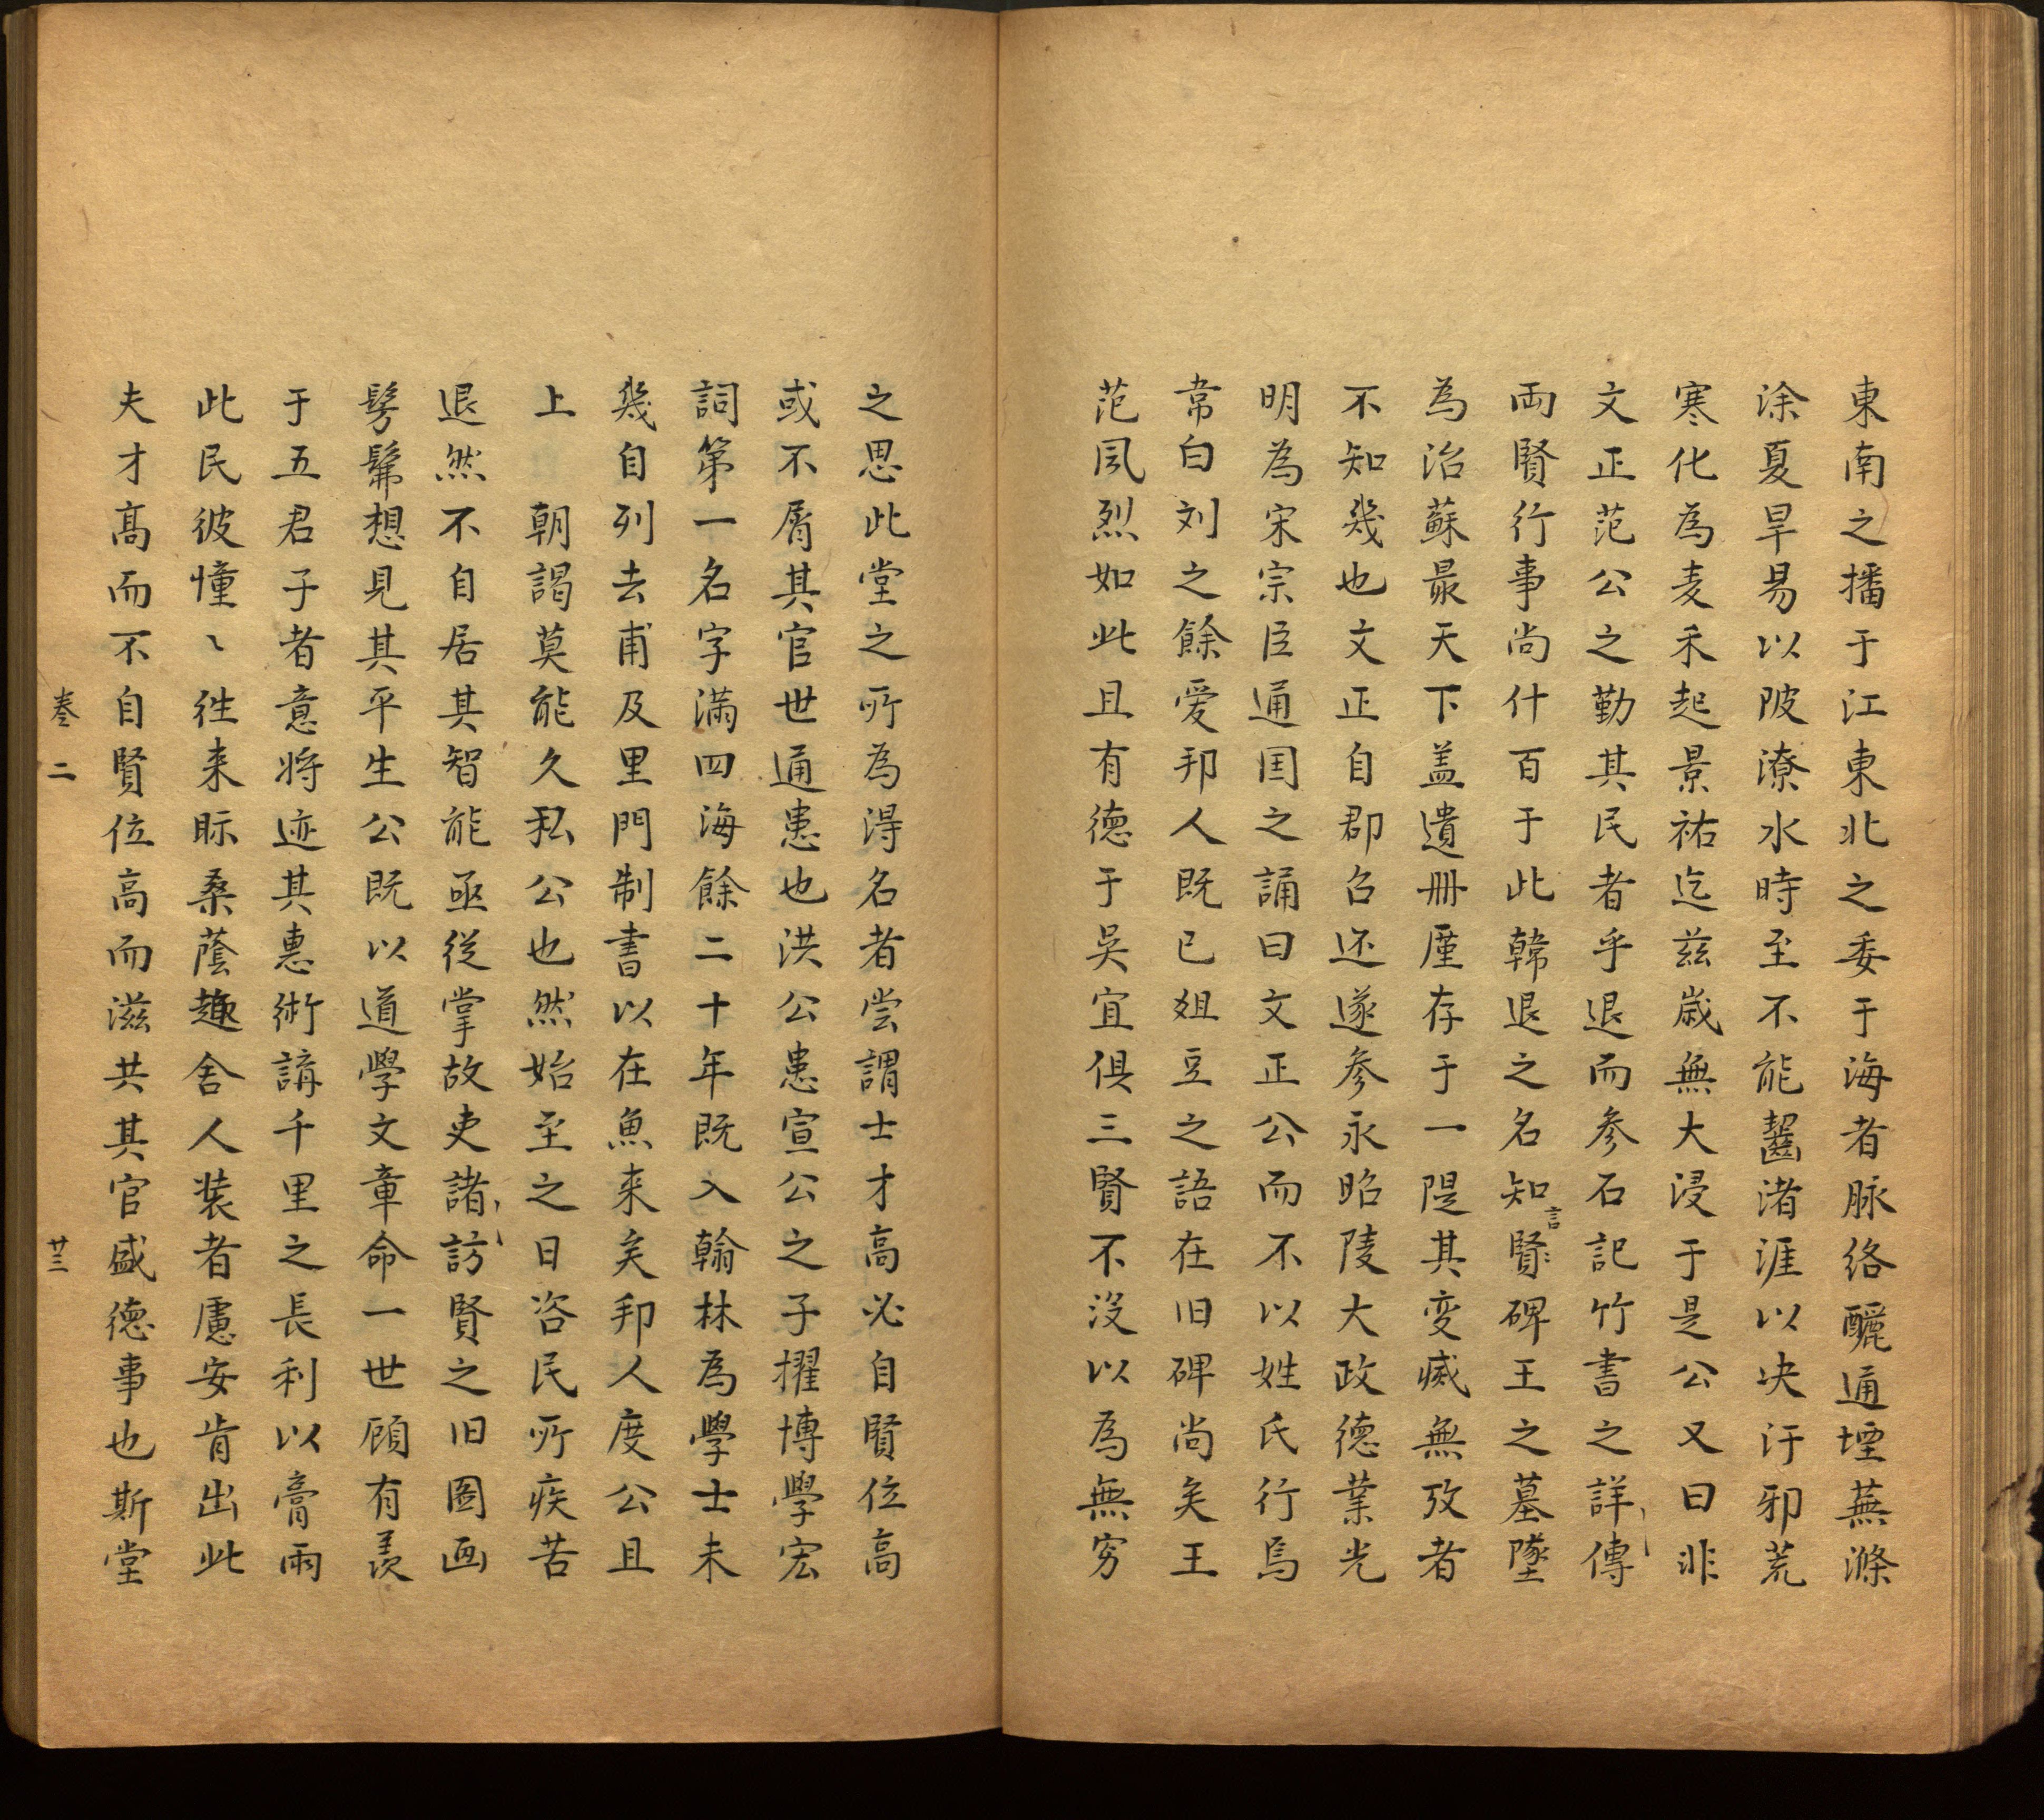 東南之播于江東北之委于海者脉絡釃通堙蕪滌
涂夏旱易以陂潦水時至不能齧渚涯以决汙邪荒
寒化為麦禾起景祐迄兹歳無大浸于是公又曰非
文正范公之勤其民者乎退而参石記竹書之詳傳
両賢行事尚什百于此韓退之名知賢碑王之墓墜
言
為治蘇最天下盖遺冊厪存于一隄其変烕無攷者
不知幾也文正自郡召还遂参永昭陵大政德業光
明為宋宗臣通国之誦曰文正公而不以姓氏行焉
常白刘之餘爱邦人既已俎豆之語在旧碑尚矣王
范风烈如此且有德于吴宜俱三賢不没以為無穷
之思此堂之所為淂名者尝謂士才高必自賢位高
或不屑其官世通患也洪公患宣公之子擢博學宏
詞第一名字滿四海餘二十年既入翰林為學士未
幾自列去甫及里門制書以在魚来矣邦人度公且
上 朝謁莫能久私公也然始至之日咨民所疾苦
退然不自居其智能亟從掌故吏諸訪賢之旧图画
髣髴想見其平生公既以道學文章命一世顧有羡
于五君子者意将迹其惠術講千里之長利以膏雨
此民彼憧〻徃来眎桑蔭趣舍人装者慮安肯出此
夫才髙而不自賢位高而滋共其官盛德事也斯堂
巻二
廿三